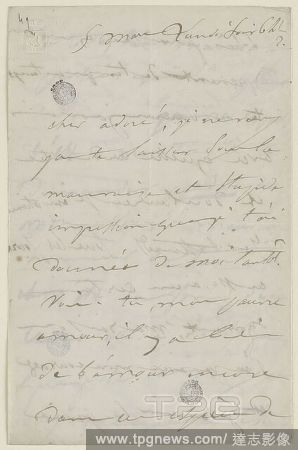 5 mars Lundi soir 6 h ½
cher adoré, je ne veux
pas te laisser sous la
mauvaise et stupide
impression que je t'ai
donnée de
Vois-tu, mon pauvre
amour, il y a
de l'amour encore
dans de
TPG
www.tpgnews.com/達志影像